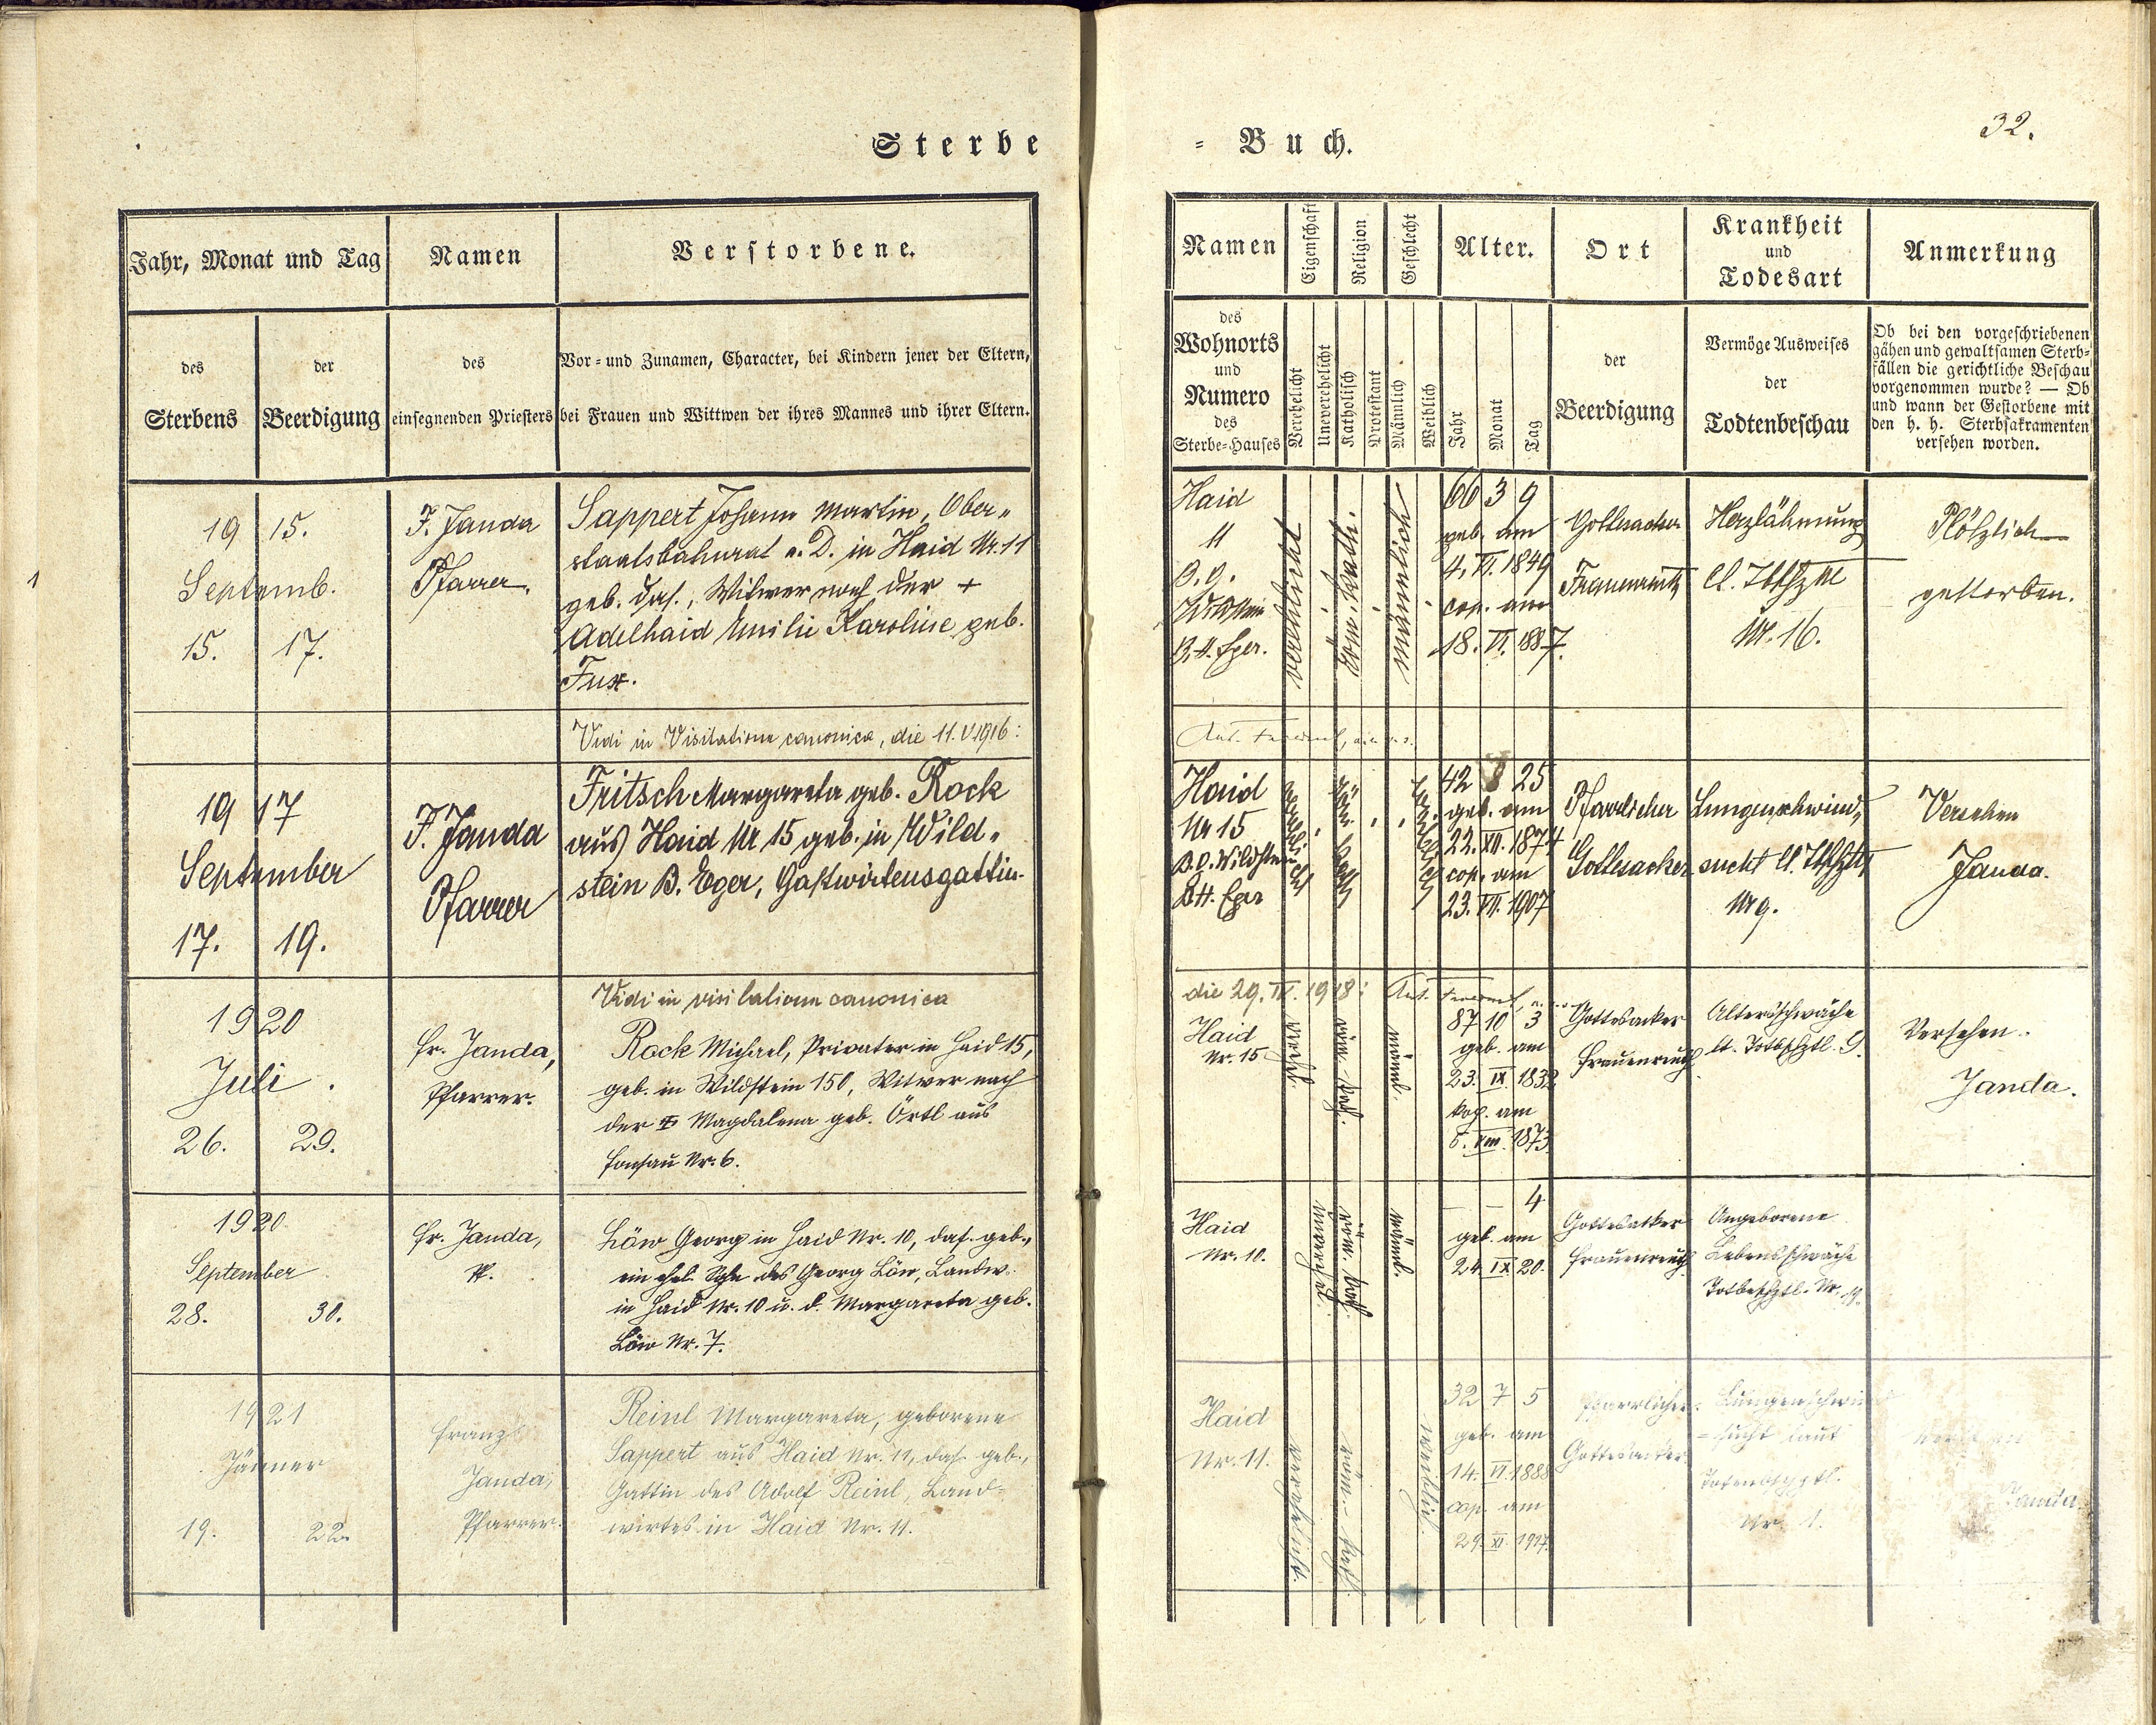 Sterbe
= Buch.
32.
Jahr, Monat und Tag
Namen
Verstorbene.
des
Sterbens
der
Beerdigung
des
einsegnenden Priesters
Vor- und Zunamen, Character, bei Kindern jener der Eltern,
bei Frauen und Wittwen der ihres Mannes und ihrer Eltern.
Namen
Eigenschaft
Religion
Geschlecht
Alter.
Ort
Krankheit
und
Todesart
Anmerkung
des
Wohnorts
und
Numero
des
Sterbe-Hauses
Verehelicht
Unverehelicht
Katholisch
Protestant
Männlich
Weiblich
Jahr
Monat
Tag
der
Beerdigung
Vermöge Ausweises
der
Todtenbeschau
Ob bei den vorgeschriebenen
gähen und gewaltsamen Sterb-
fällen die gerichtliche Beschau
vorgenommen wurde? — Ob
und wann der Gestorbene mit
den h. h. Sterbsakramenten
versehen worden.
1915.
Septemb.
15. 17.
F. Janda
Pfarrer.
Sappert Johann Martin, Ober„
staatsbahnrat a. D. in Haid Nr. 11
geb. das., Witwer nach der +
Adelhaid Emilie Karoline geb.
Fux.
Haid
11
B. H. Eger.
verehlicht
röm. kath.
männlich
66 3 9
geb. am
4. VI. 1849
cop. am
18. VI. 1887.
Gottesacker
Frauenreuth
Herzlähmung
Nr. 16.
Plötzlich
gestorben.
Vidi in Visitatione canonica, die 11. V. 1916:
1917
September
17. 19.
F. Janda
Pfarrer
Fritsch Margareta geb. Rock
aus Haid Nr 15 geb. in Wild„
stein B. Eger, Gastwirtensgattin.
Haid
Nr 15
B. H. Eger
42 8 25
geb. am
22. XII. 1874
cop. am
23. VII. 1907
Pfarrlicher
Gottesacker
Lungenschwind„
sucht
Nr 9.
Versehen
Janda.
Vidi in visitatione canonica
die 29. IV. 1918:
1920
Juli
26. 29.
Fr. Janda,
Pfarrer.
Rock Michael, Privater in Haid 15,
geb. in Wildstein 150, Witwer nach
der Magdalena geb. Örtl aus
Nr. 6.
Haid
Nr. 15
männl.
87 10 3
geb. am
23. IX. 1832
kop. am
1873
Gottesacker
Frauenreuth
Altersschwäche
9.
Versehen.
Janda.
1920
September
28. 30.
Fr. Janda,
Pf.
Löw Georg in Haid Nr. 10, das. geb.,
ein ehel. Sohn des Georg Löw, Landw.
in Haid Nr. 10 u. d. Margareta geb.
Löw Nr. 7.
Haid
Nr. 10.
unverehel.
röm. kath.
männl.
– – 4
geb. am
24. IX 20.
Gottesacker
Frauenreuth
Angeborene
Lebensschwäche
1921
Jänner
19. 22.
Franz
Janda,
Pfarrer.
Reinl Margareta, geborene
Sappert aus Haid Nr. 11, das. geb.,
Gattin des Adolf Reinl, Land-
wirtes in Haid Nr. 11.
Haid
Nr. 11.
verehelicht.
röm.-kath.
weiblich.
32 7 5
geb. am
14. VI. 1888
cop. am
29. XI. 1917.
Pfarrlicher
Gottesacker
=sucht laut
Nr. 1.
Janda.